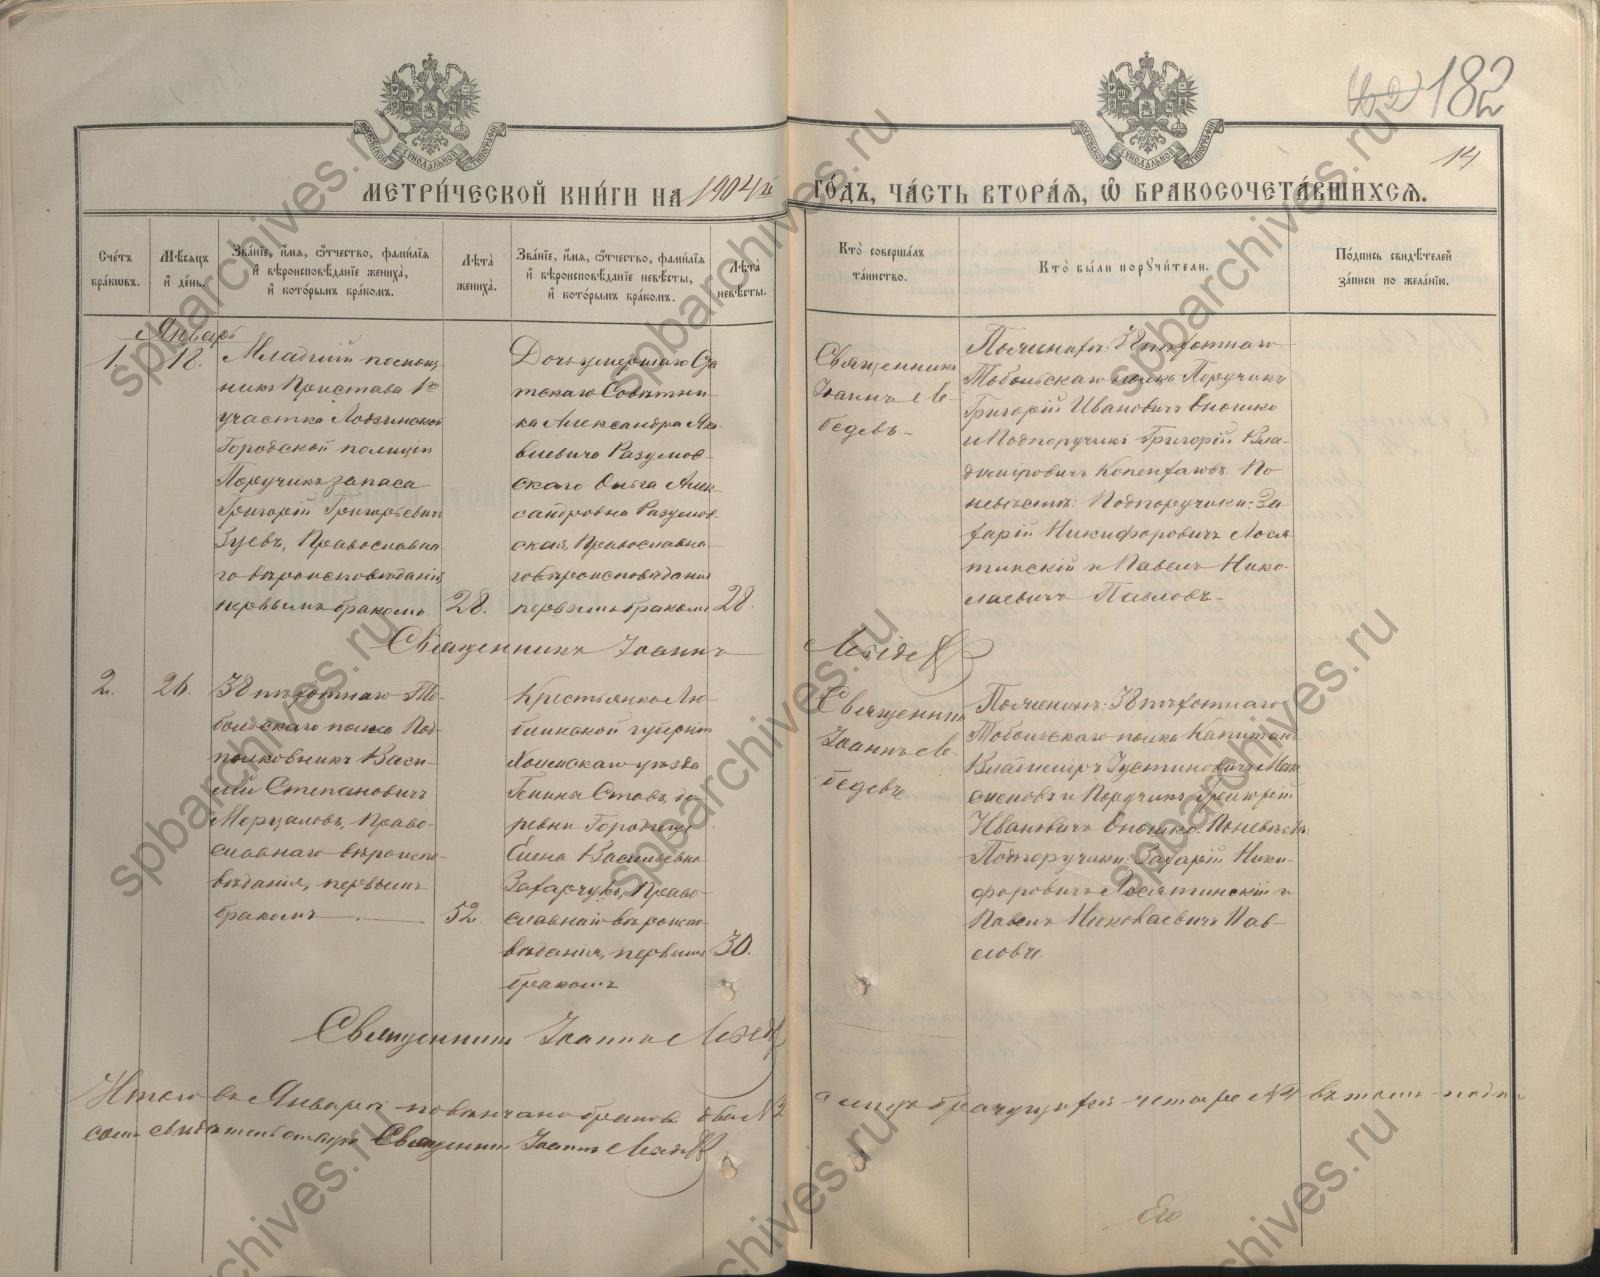 182
14
МЕТРИ́ЧЕСКОЙ КНИ́ГИ НА 1904й ГО́ДЪ, ЧА́СТЬ ВТОРА́Я, Ѡ БРАКОСОЧЕТА́ВШИХСЯ.
Сче́тъ бра́кѡвъ.
Мѣ́сяцъ и҆ де́нь.
Зва́нїе, и҆́мя, ѻ҆́тчество, фами́лїя и҆ вѣроисповѣ́данїе жениха̀, и҆ кото́рымъ бра́комъ.
Лѣ́та жениха̀.
Зва́нїе, и҆́мя, ѻ҆́тчество, фами́лїя и҆ вѣроисповѣ́данїе невѣ́сты, и҆ кото́рымъ бра́комъ.
Лѣ́та невѣ́сты.
Кто̀ соверша́лъ та́инство.
Кто̀ бы́ли порꙋчи́тели.
По́дпись свидѣ́телей за́писи по жела́нїю.
Январь
1.
18.
Младшій помощ
никъ Пристава 1го
участка Лодзинской
Городской полиціи
Поручикъ запаса
Григорій Григорьевичъ
Гуевъ, Православна
го вѣроисповѣданія,
первымъ бракомъ
28.
Дочь умершаго Ста
тскаго Совѣтни
ка Александра Па
влевича Разумов
скаго Ольга Алек
сандровна Разумов
ская, Православна
го вѣроисповѣданія
первымъ бракомъ
28.
Священникъ
Іоаннъ Ле
бедевъ
По женихѣ: 38 пѣхотнаго
Тобольскаго полка Поручикъ
Григорій Ивановичъ Оношко
и Подпоручикъ Григорій Вла
диміровичъ По
невѣстѣ: Подпоручики: За
харій Никифоровичъ Лося
тинскій и Павелъ Нико
лаевичъ Павловъ
Священникъ Іоаннъ Лебедевъ
2.
26.
38 пѣхотнаго То
больскаго полка Под
полковникъ Васи
лій Степановичъ
Мерцаловъ, Право
славнаго вѣроиспо
вѣданія, первымъ
бракомъ
52.
Крестьянка Лю
блинской губерніи
Холмскаго уѣзда
Гмины Ставъ, де
ревни Городище
Елена Васильевна
Захарчукъ, Право
славнаго вѣроиспо
вѣданія, первымъ
бракомъ
30.
Священникъ
Іоаннъ Ле
бедевъ
По женихѣ: 38 пѣхотнаго
Тобольскаго полка Капитанъ
Владиміръ Іустиновичъ Мак
симовъ и Поручикъ Григорій
Ивановичъ Оношко. По невѣстѣ
Подпоручики: Захарій Ники
форовичъ Лосятинскій и
Павелъ Николаевичъ Пав
ловъ.
Священникъ Іоаннъ Лебедевъ
Итого въ Январѣ повѣнчано браковъ два № 2 а лицъ брачущихся четыре № 4 въ томъ подпи
сомъ свидѣтельствую Священникъ Іоаннъ Лебедевъ
spbarchives.ru
spbarchives.ru
spbarchives.ru
spbarchives.ru
spbarchives.ru
spbarchives.ru